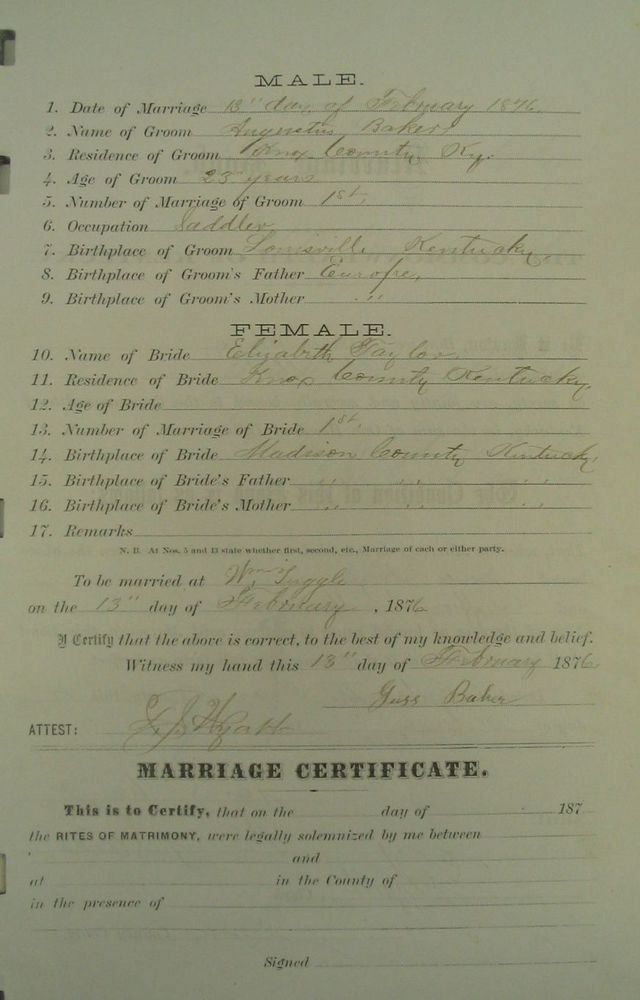 MALE.
1. Date of Marriage 13" day of February 1876
2. Name of Groom Augustus Baker
3. Residence of Groom Knox County, Ky.
4. Age of Groom 23 years
5. Number of Marriage of Groom 1st.
6. Occupation Saddler
7. Birthplace of Groom Louisville Kentucky,
8. Birthplace of Groom's Father Europe,
9. Birthplace of Groom's Mother "
FEMALE.
10. Name of Bride Elizabeth Taylor.
11. Residence of Bride Knox County Kentucky,
12. Age of Bride
13. Number of Marriage of Bride 1st.
14. Birthplace of Bride Madison County Kentucky,
15. Birthplace of Bride's Father " " "
16. Birthplace of Bride's Mother " " "
17. Remarks
N. B. At Nos. 5 and 13 state whether first, second, etc., Marriage of each or either party.
To be married at Wm Tuggle
on the 13" day of February, 1876
I Certify that the above is correct, to the best of my knowledge and belief.
Witness my hand this 13" day of February 1876
Guss Baker
ATTEST:
MARRIAGE CERTIFICATE.
This is to Certify, that on the day of 187
the RITES OF MATRIMONY, were legally solemnized by me between
and
at in the County of
in the presence of
Signed